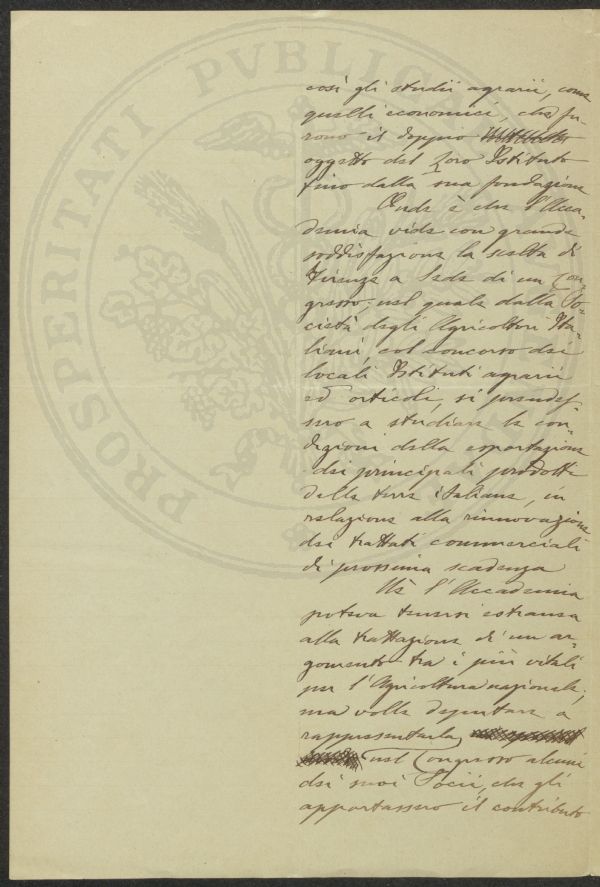 PROSPERITATI PVBLICA
così gli studii agrarii, come
quelli economici, che fu-
rono il doppio
oggetto del loro Istituto
fino dalla sua fondazione
Onde è che l'Acca-
demia vide con grande
soddisfazione la scelta di
Firenze a Sede di un Con-
gresso, nel quale dalla So-
cietà degli Agricoltori Ita-
liani, col concorso dei
locali Istituti agrarii
ed orticoli, si prendes-
sero a studiare le con-
dizioni della esportazione
dei principali prodotti
delle terre italiane, in
relazione alla rinnovazione
dei trattati commerciali
di prossima scadenza
Nè l'Accademia
poteva tenersi estranea
alla trattazione di un ar-
gomento tra i più vitali
per l'Agricoltura nazionale,
ma volle deputare a
rappresentarla
nel Congresso alcuni
dei suoi Socii, che gli
apportassero il contributo